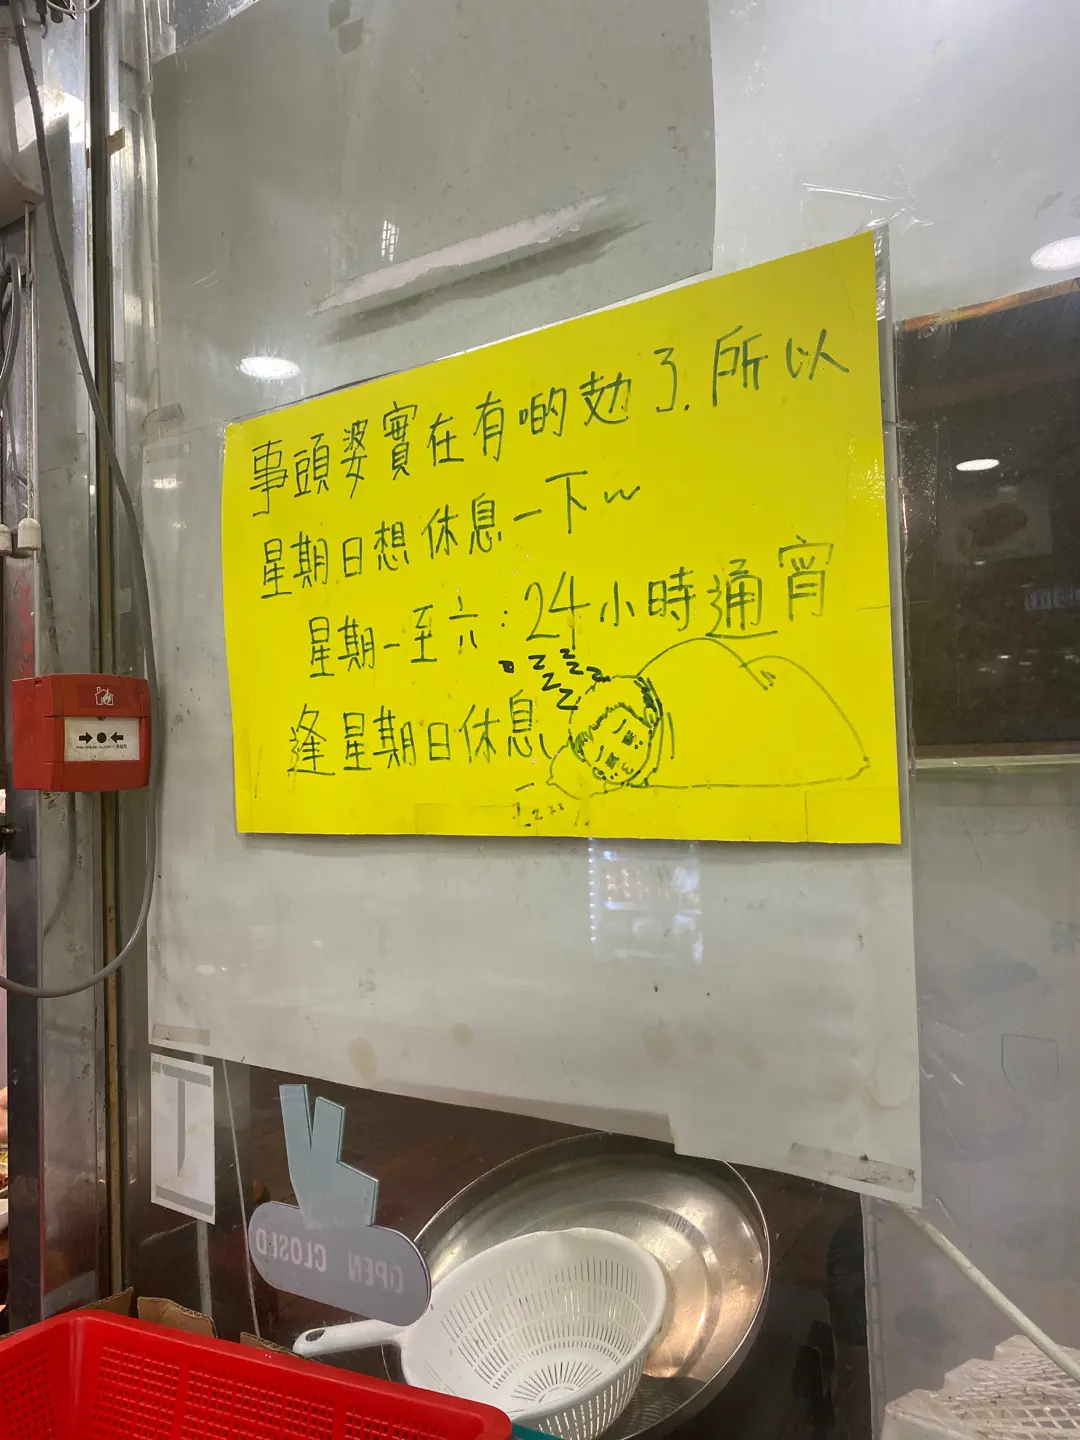 事頭婆實在有啲攰了.所以
星期日想休息一下~
星期一至六:24小時通宵
逢星期日休息
zzzzz
OPEN CLOSED